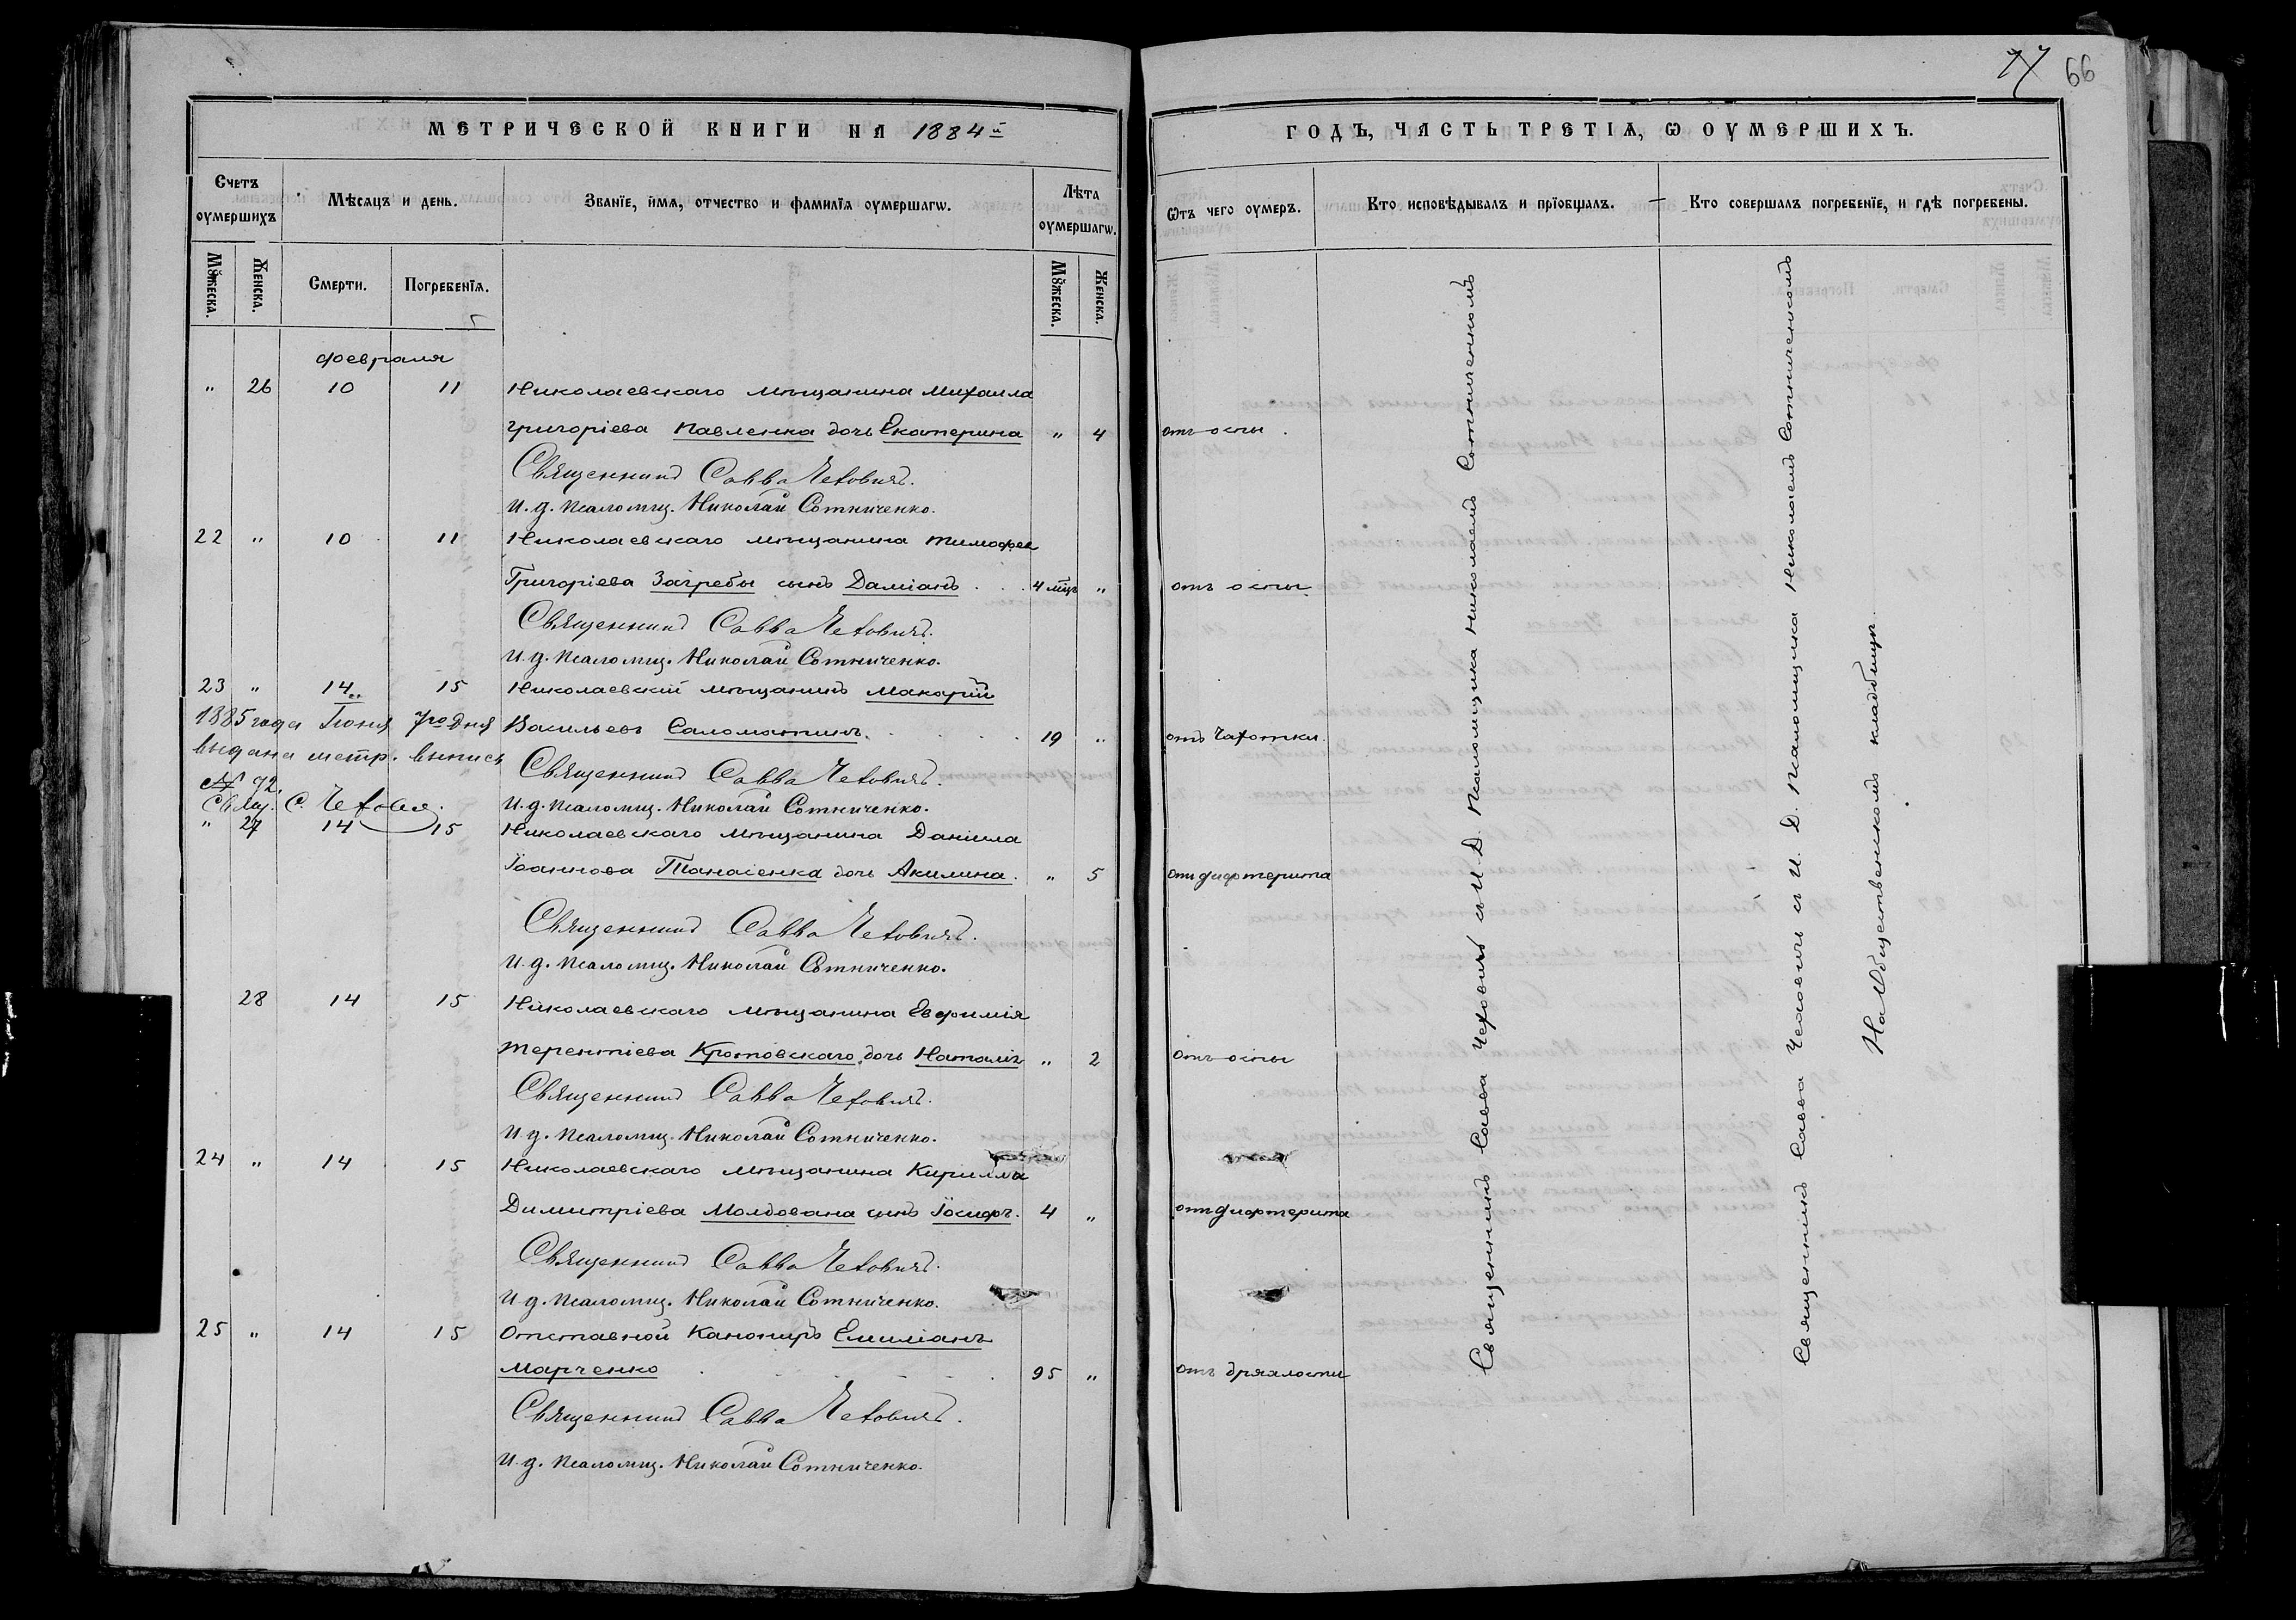 МЕТРИЧЕСКОЙ КНИГИ НА 1884й
Счетъ оумершихъ
Мѣсяцъ и день.
Званїе, имя, отчество и фамилїя оумершагѡ.
Лѣта оумершагѡ.
Мꙋжеска. Женска. Смерти. Погребенїя. Мꙋжеска. Женска.
февраля
" 26 10 11 Николаевскаго мѣщанина Михаила
Григоріева Павленка дочь Екатерина " 4
Священникъ Савва Чеховичъ.
И. д. псаломщ. Николай Сотниченко.
22 " 10 11 Николаевскаго мѣщанина Тимофея
Григоріева Загребы сынъ Даміанъ . . . 4 мѣц. "
Священникъ Савва Чеховичъ.
И. д. псаломщ. Николай Сотниченко.
23 " 14 15 Николаевскій мѣщанинъ Макарій
Васильевъ Саломатинъ . . . . 19 "
1885 года Іюня 7го дня
выдана метр. выпись
№ 92.
Свящ. С. Чехович.
Священникъ Савва Чеховичъ.
И. д. псаломщ. Николай Сотниченко.
" 27 14 15 Николаевскаго мѣщанина Даніила
Іоаннова Танасіенка дочь Акилина . " 5
Священникъ Савва Чеховичъ.
И. д. псаломщ. Николай Сотниченко.
28 14 15 Николаевскаго мѣщанина Евфимія
Терентіева Кротовскаго дочь Наталія " 2
Священникъ Савва Чеховичъ.
И. д. псаломщ. Николай Сотниченко.
24 " 14 15 Николаевскаго мѣщанина Кирилла
Димитріева Молдована сынъ Іосифъ . 4 "
Священникъ Савва Чеховичъ.
И. д. псаломщ. Николай Сотниченко.
25 " 14 15 Отставной канониръ Емиліанъ
Марченко . . . . 95 "
Священникъ Савва Чеховичъ.
И. д. псаломщ. Николай Сотниченко.
66
ГОДЪ, ЧАСТЬ ТРЕТІЯ, Ѡ ОУМЕРШИХЪ.
Ѿтъ чего оумеръ.
Кто исповѣдывалъ и прїобщалъ.
Кто совершалъ погребенїе, и гдѣ погребены.
отъ оспы.
отъ оспы.
отъ чахотки.
отъ дифтерита
отъ оспы
отъ дифтерита
отъ дряхлости
Священникъ Савва Чеховичъ съ И. Д. Псаломщика Николаемъ Сотниченкомъ
Священникъ Савва Чехович съ И. Д. Псаломщика Николаемъ Сотниченкомъ
На Общественномъ кладбищѣ.